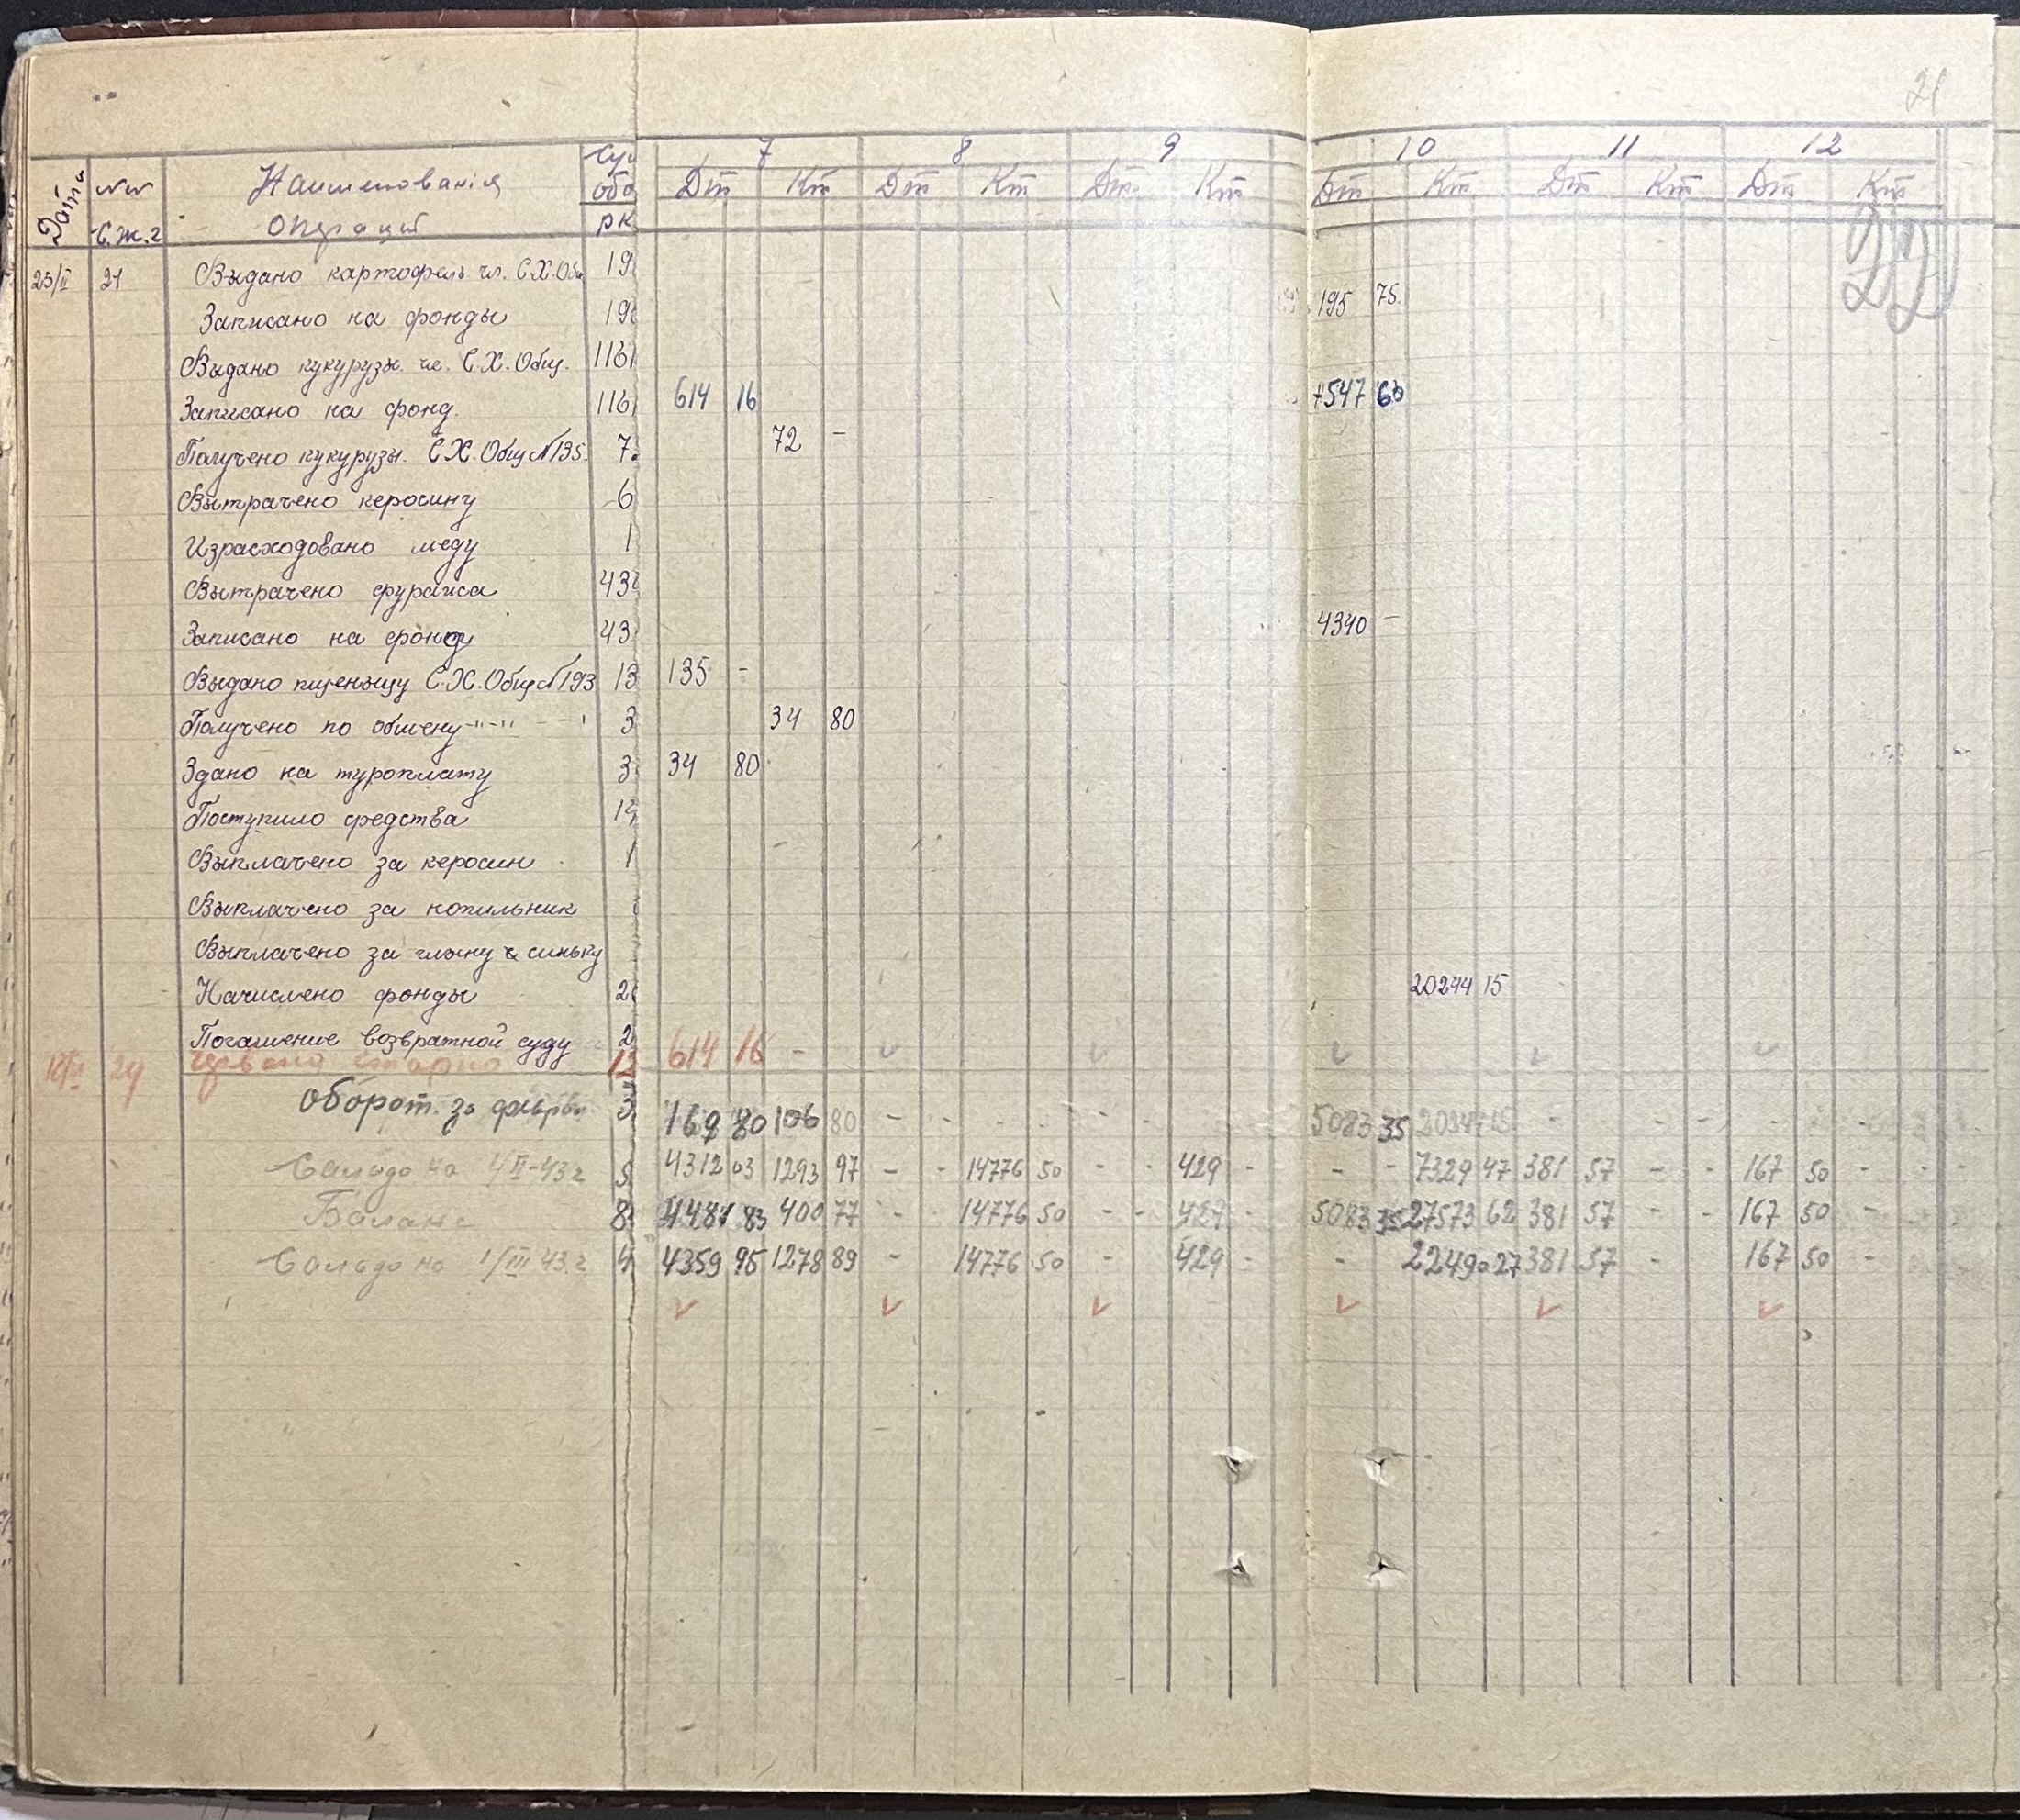 21
7 8 9 10 11 12
Дата №№ Наименованія обо Дт Кт Дт Кт Дт Кт Дт Кт Дт Кт Дт Кт
С.Ж.г операций рк
22
25/II 21 Выдано картофель чл. С.Х.Общ 19
195 75
Записано на фонды 19
Выдано кукурузы чл. С.Х.Общ. 116
Записано на фонд. 116 614 16 547 60
Получено кукурузы. С.Х.Общ №135. 7 72 -
Вытрачено керосину 6
Израсходовано меду 1
Вытрачено фуража 43
Записано на фонды 43 4340 -
Выдано пшеныцу С.Х.Общ №193 13 135 -
Получено по обмену -"-"- 3 34 80
Здано на туроплату 3 34 80
Поступило средства 14
Выплачено за керосин 1
Выплачено за копильник
Выплачено за глыну и синьку
Начислено фонды 2 20244 15
Погашение возвратной суду 2
24 сторно 12 614 16 -
оборот. за 3 169 80 106 80 - - - - - - 5083 35 - - - - - -
Сальдо на 1/II-43г 5 4312 03 1293 97 - - 14776 50 - - 429 - - - 7329 47 381 57 - - 167 50 - -
Баланс 8 4481 83 400 77 - - 14776 50 - - 429 - 5083 35 27573 62 381 57 - - 167 50 - -
Сальдо на 1/III 43.г 4 4359 95 1278 89 - 14776 50 - 429 - - 22490 27 381 57 - 167 50 -